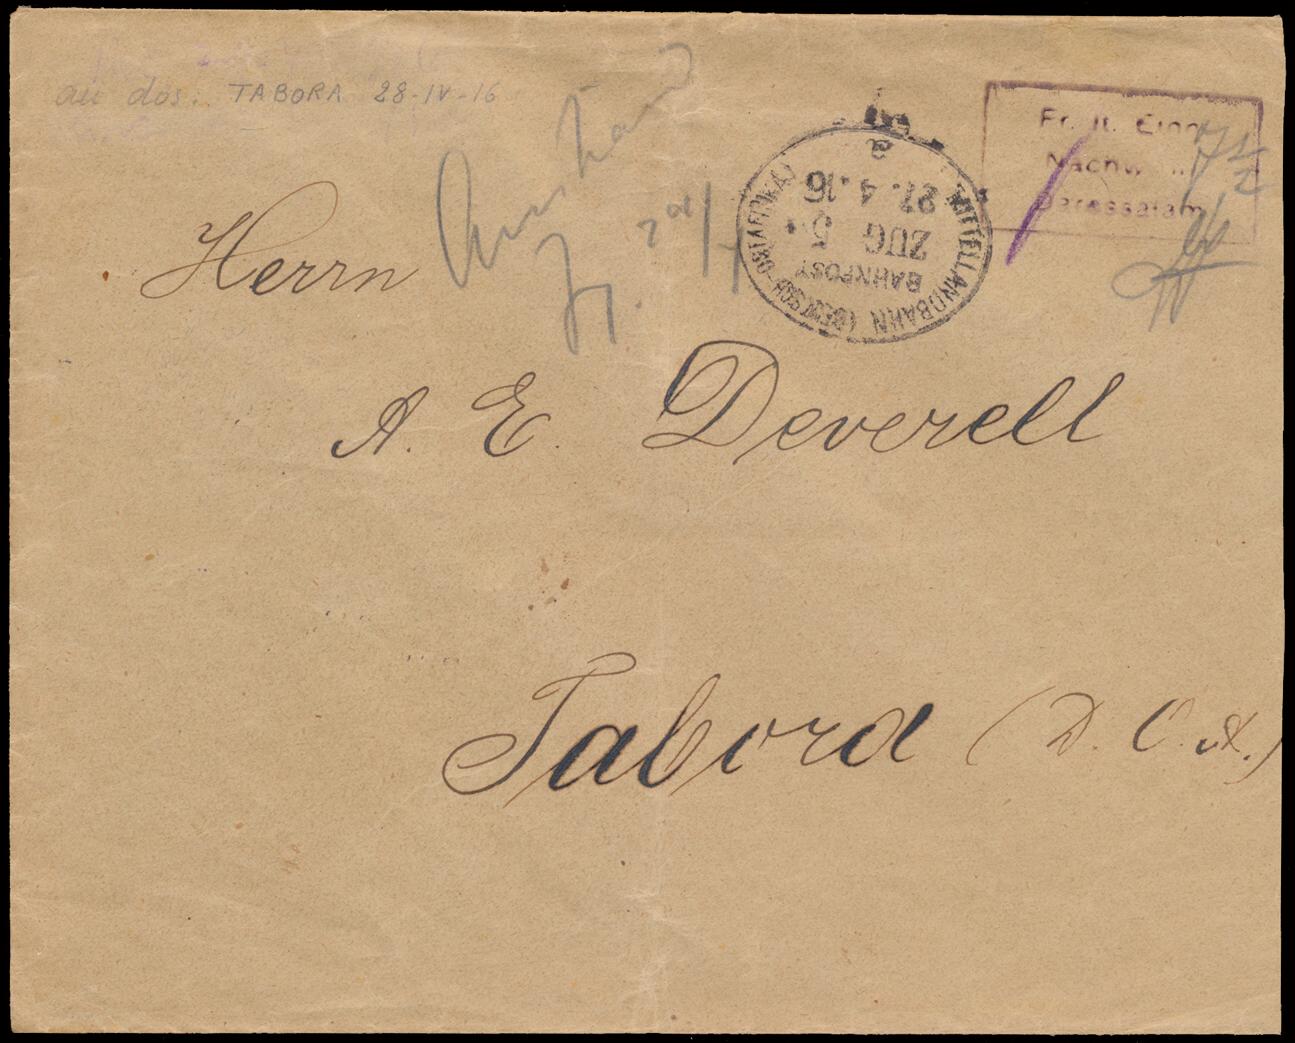 au dos: TABORA 28-IV-16
Fr. lt. Einn.
Nachw.
Daressalam
MITTELLANDBAHN (DEUTSCH-OSTAFRIKA)
BAHNPOST
ZUG 5
27.4.16
a
Herrn
A. E. Deverell
Tabora (D. O. A.)